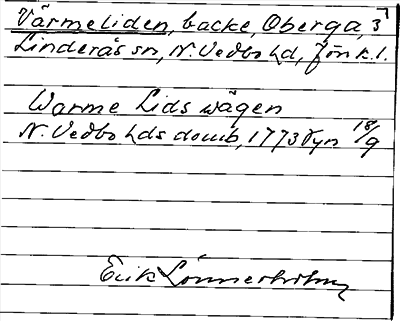 Värmeliden, backe, Oberga, 3
Linderås sn, N. Vedbo hd, Jönk. l.
Warme Lids wägen
N. Vedbo hds domb, 1773 Vyn 18/9
Erik Lönnerholm